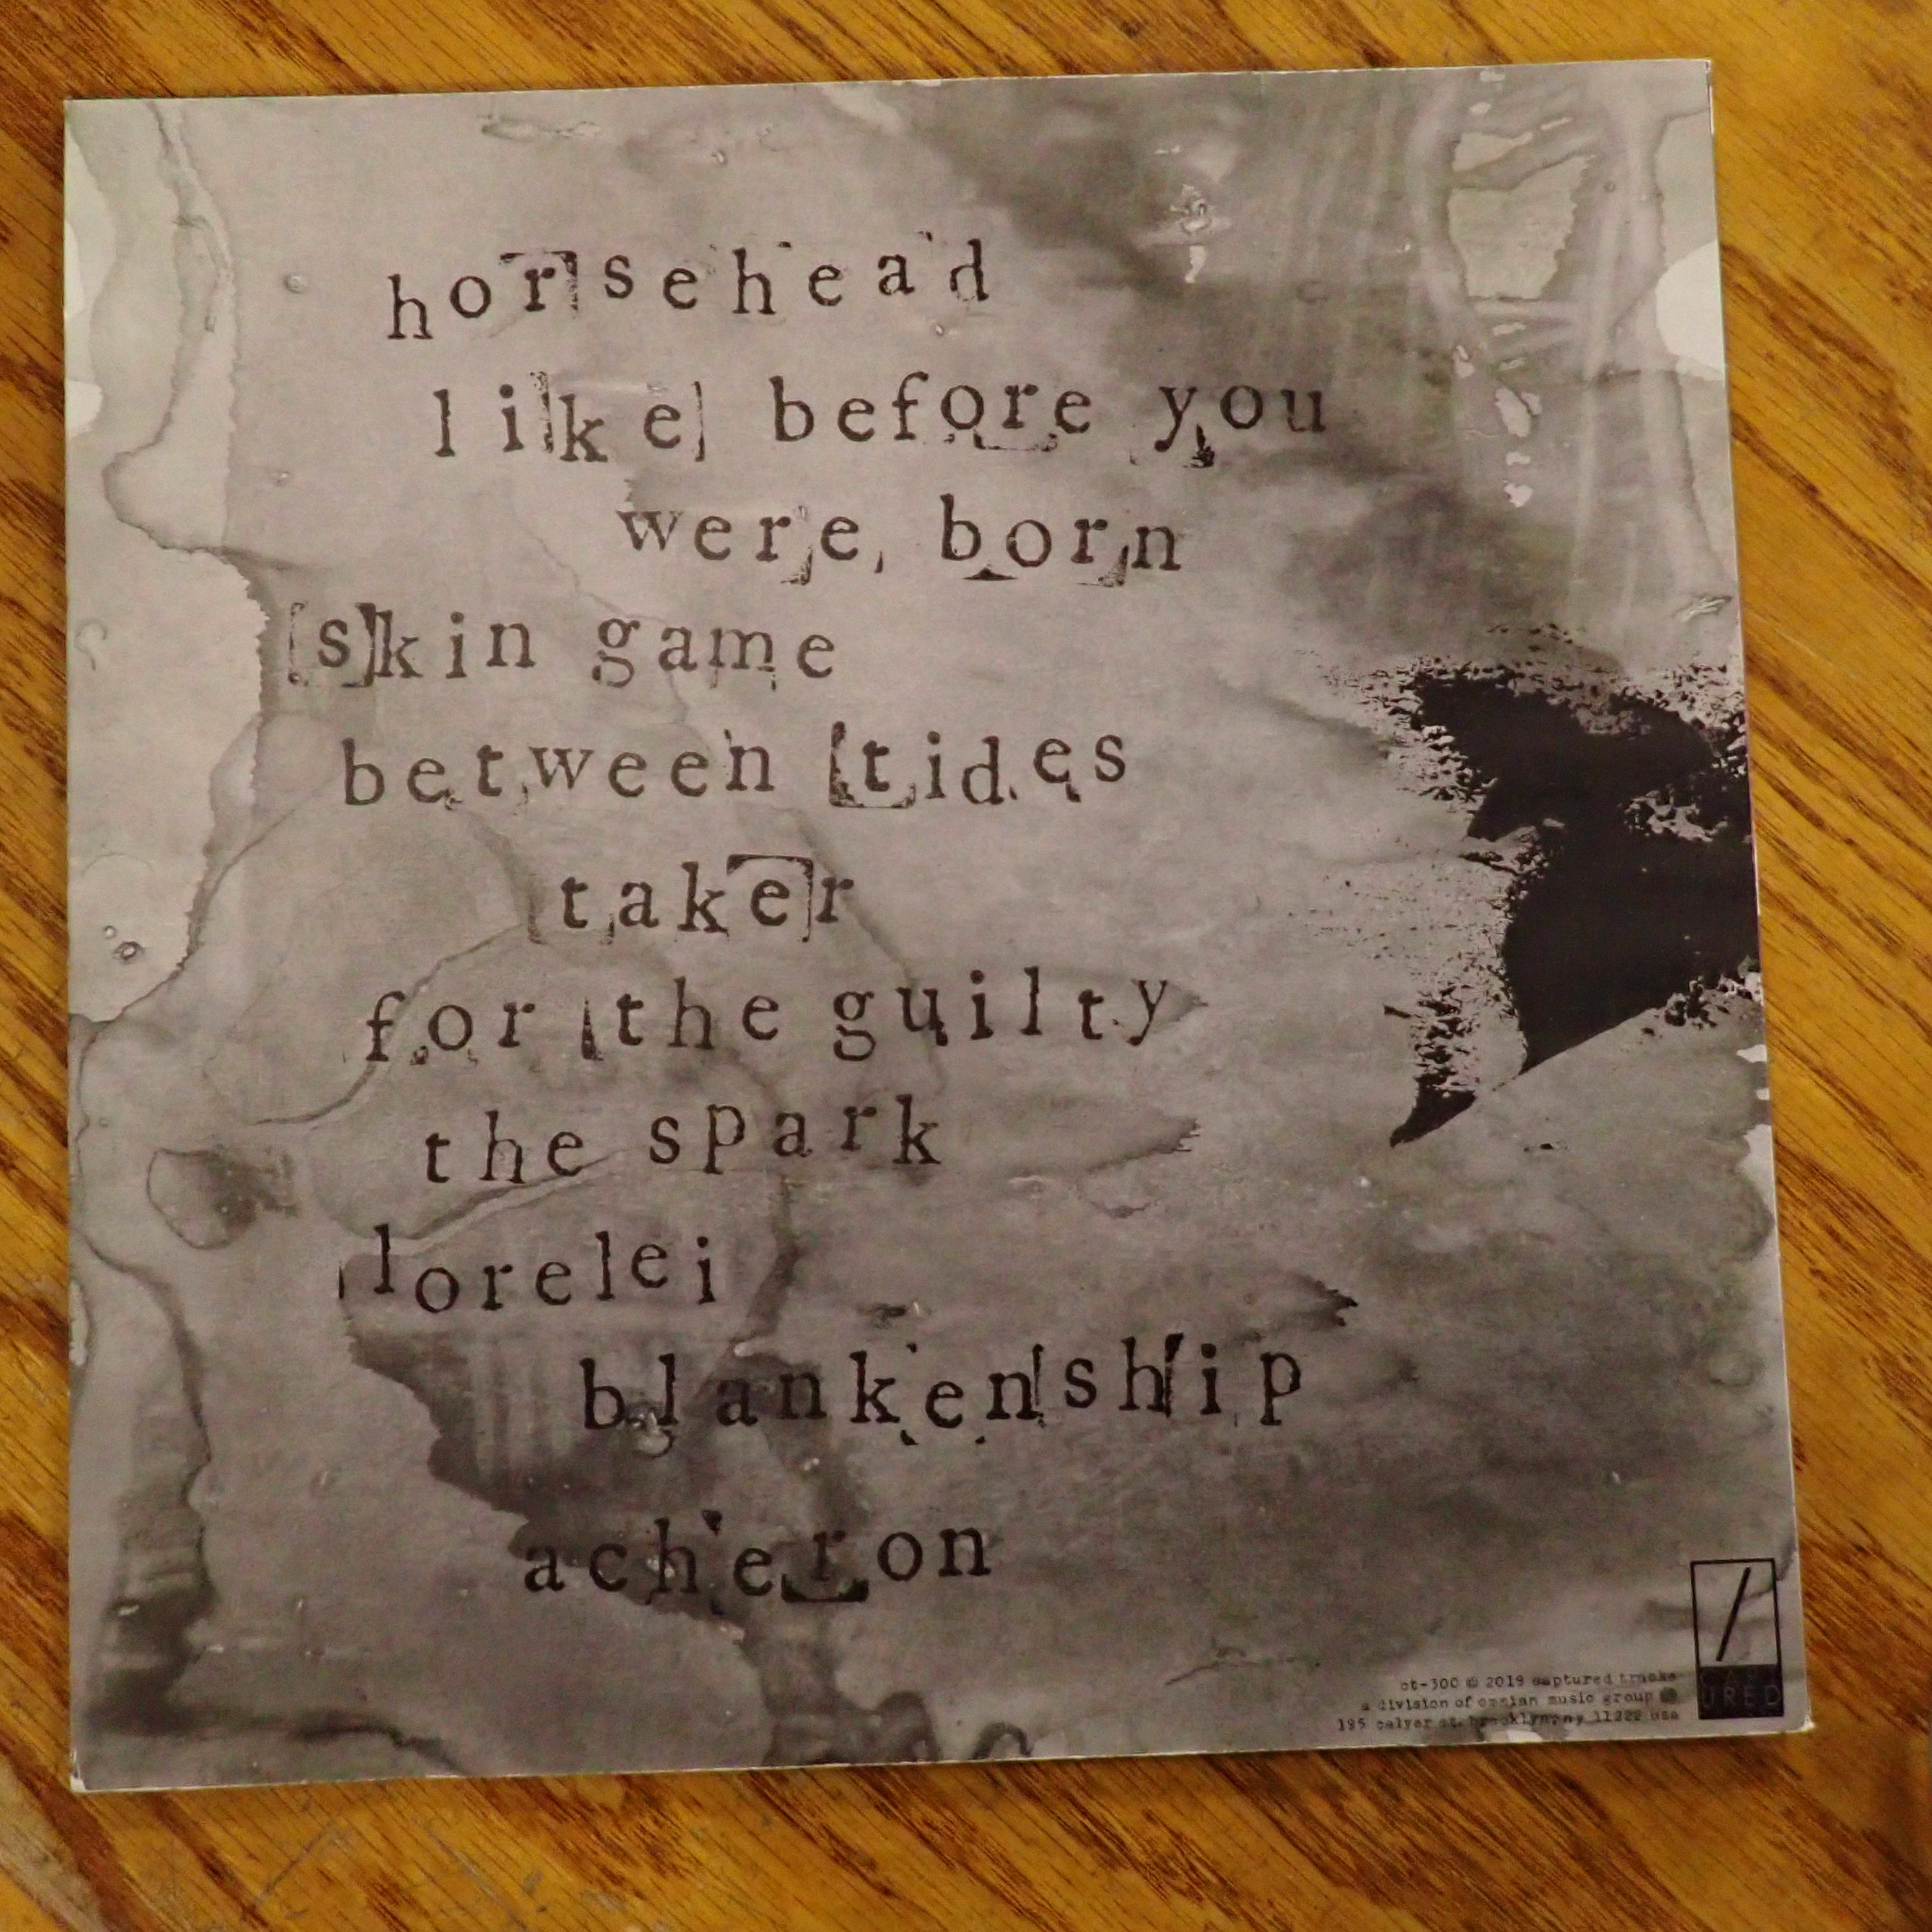 horsehead
like before you
were born
skin game
between tides
taker
for the guilty
the spark
lorelei
blankenship
acheron
ct-300 © 2019 captured tracks
a division of omnian music group
195 calyer st. brooklyn, ny 11222 usa
URED